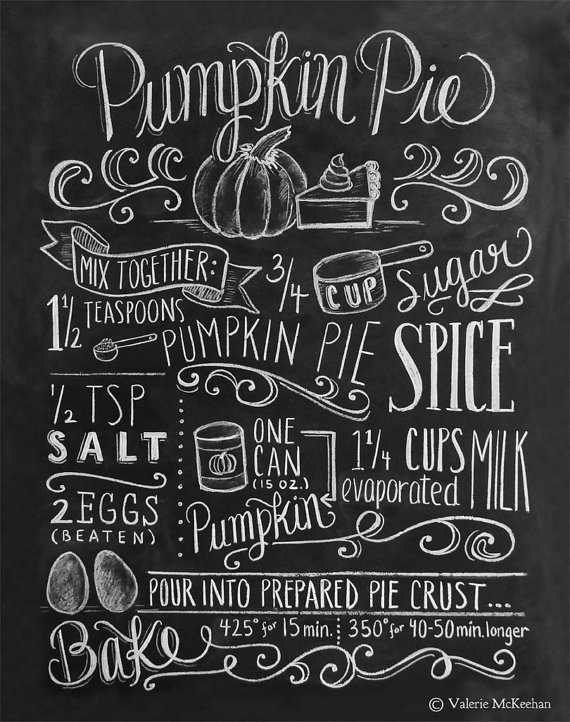 Pumpkin Pie
MIX TOGETHER:
3/4 CUP Sugar
1 1/2 TEASPOONS
PUMPKIN PIE SPICE
1/2 TSP
SALT
2 EGGS
(BEATEN)
ONE
CAN
(15 OZ.)
Pumpkin
1 1/4 CUPS
evaporated
MILK
POUR INTO PREPARED PIE CRUST...
Bake
425° for 15 min. 350° for 40-50 min. longer
© Valerie McKeehan